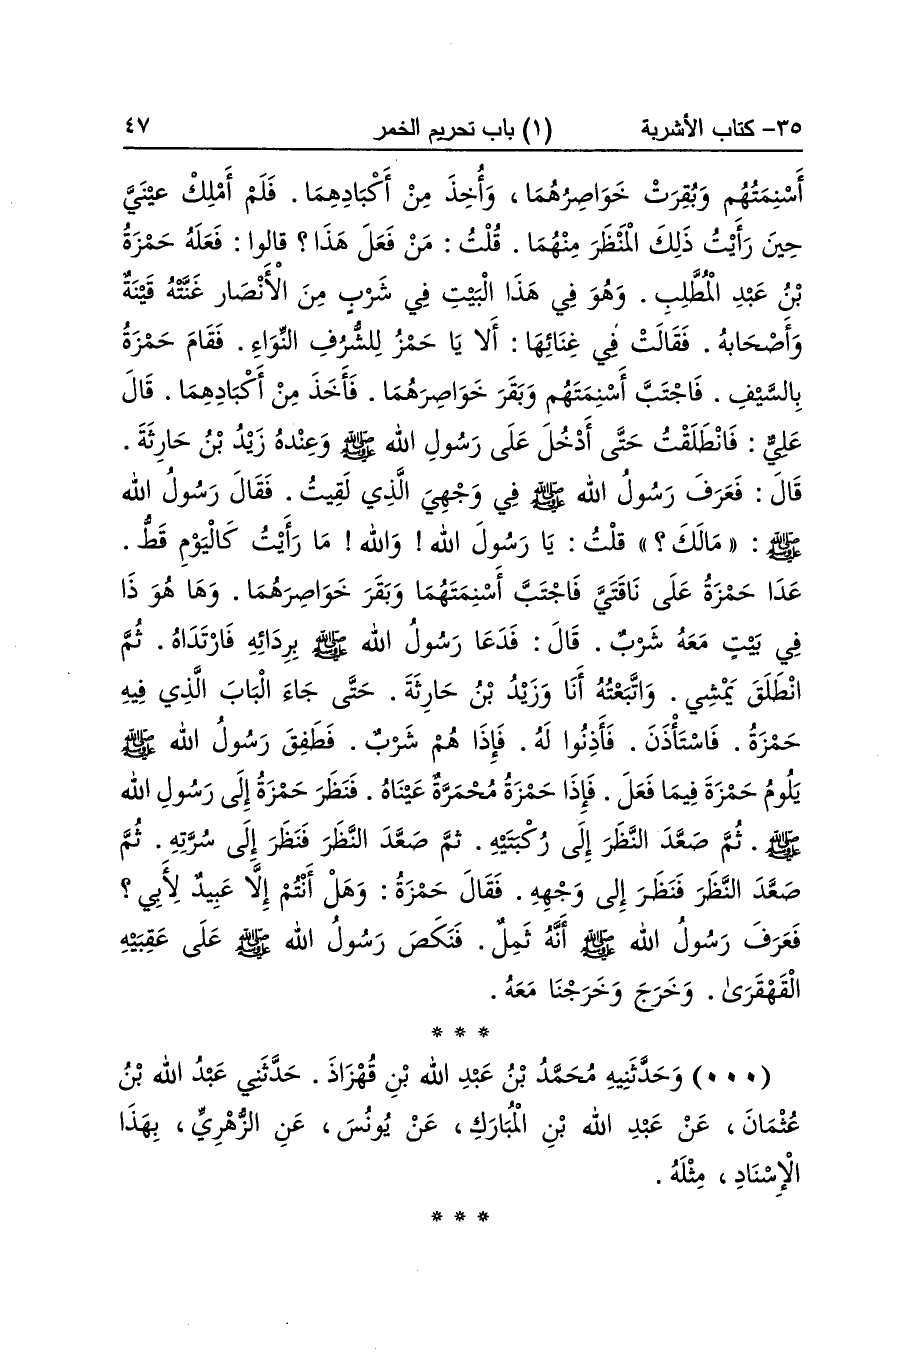 ٣٥- كتاب الأشربة (١) باب تحريم الخمر ٤٧
أَسْنِمَتُهُم وَبُقِرَتْ خَوَاصِرُهُمَا ، وَأُخِذَ مِنْ أَكْبَادِهِمَا . فَلَمْ أَمْلِكْ عيْنَيَّ
حِينَ رَأَيْتُ ذَلِكَ الْمَنْظَرَ مِنْهُمَا . قُلْتُ : مَنْ فَعَلَ هَذَا ؟ قالوا : فَعَلَهُ حَمْزَةُ
بْنُ عَبْدِ الْمُطَّلِبِ . وَهُوَ فِي هَذَا الْبَيْتِ فِي شَرْبٍ مِنَ الْأَنْصَارِ غَنَّتْهُ قَيْنَةٌ
وَأَصْحَابهُ . فَقَالَتْ فِي غِنَائِهَا : أَلا يَا حَمْزُ لِلشُّرُفِ النِّوَاءِ . فَقَامَ حَمْزَةُ
بِالسَّيْفِ . فَاجْتَبَّ أَسْنِمَتَهُم وَبَقَرَ خَوَاصِرَهُمَا . فَأَخَذَ مِنْ أَكْبَادِهِمَا . قَالَ
عَلِيٌّ : فَانْطَلَقْتُ حَتَّى أَدْخُلَ عَلَى رَسُولِ الله ﷺ وَعِنْدهُ زَيْدُ بْنُ حَارِثَةَ .
قَالَ : فَعَرَفَ رَسُولُ الله ﷺ فِي وَجْهِيَ الَّذِي لَقِيتُ . فَقَالَ رَسُولُ الله
ﷺ : « مَالَكَ ؟ » قلْتُ : يَا رَسُولَ الله ! وَالله ! مَا رَأَيْتُ كَالْيَوْمِ قَطُّ .
عَدَا حَمْزَةُ عَلَى نَاقَتَيَّ فَاجْتَبَّ أَسْنِمَتَهُمَا وَبَقَرَ خَوَاصِرَهُمَا . وَهَا هُوَ ذَا
فِي بَيْتٍ مَعَهُ شَرْبٌ . قَالَ : فَدَعَا رَسُولُ الله ﷺ بِرِدَائِهِ فَارْتَدَاهُ . ثُمَّ
انْطَلَقَ يَمْشِي . وَاتَّبَعْتُهُ أَنَا وَزَيْدُ بْنُ حَارِثَةَ . حَتَّى جَاءَ الْبَابَ الَّذِي فِيهِ
حَمْزَةُ . فَاسْتَأْذَنَ . فَأَذِنُوا لَهُ . فَإِذَا هُمْ شَرْبٌ . فَطَفِقَ رَسُولُ الله ﷺ
يَلُومُ حَمْزَةَ فِيمَا فَعَلَ . فَإِذَا حَمْزَةُ مُحْمَرَّةٌ عَيْنَاهُ . فَنَظَرَ حَمْزَةُ إِلَى رَسُولِ الله
ﷺ . ثُمَّ صَعَّدَ النَّظَرَ إِلَى رُكْبَتَيْهِ . ثمَّ صَعَّدَ النَّظَرَ فَنَظَرَ إِلَى سُرَّتِهِ . ثُمَّ
صَعَّدَ النَّظَرَ فَنَظَرَ إِلى وَجْهِهِ . فَقَالَ حَمْزَةُ : وَهَلْ أَنْتُمْ إِلَّا عَبِيدٌ لِأَبِي ؟
فَعَرَفَ رَسُولُ الله ﷺ أَنَّهُ ثَمِلٌ . فَنَكَصَ رَسُولُ الله ﷺ عَلَى عَقِبَيْهِ
الْقَهْقَرَىٰ . وَخَرَجَ وَخَرَجْنَا مَعَهُ .
* * *
(٠٠٠) وَحَدَّثَنِيهِ مُحَمَّدُ بْنُ عَبْدِ الله بْنِ قُهْزَاذَ . حَدَّثَنِي عَبْدُ الله بْنُ
عُثْمَانَ ، عَنْ عَبْدِ الله بْنِ الْمُبَارَكِ ، عَنْ يُونُسَ ، عَنِ الزُّهْرِيِّ ، بِهَذَا
الْإِسْنَادِ ، مِثْلَهُ .
* * *